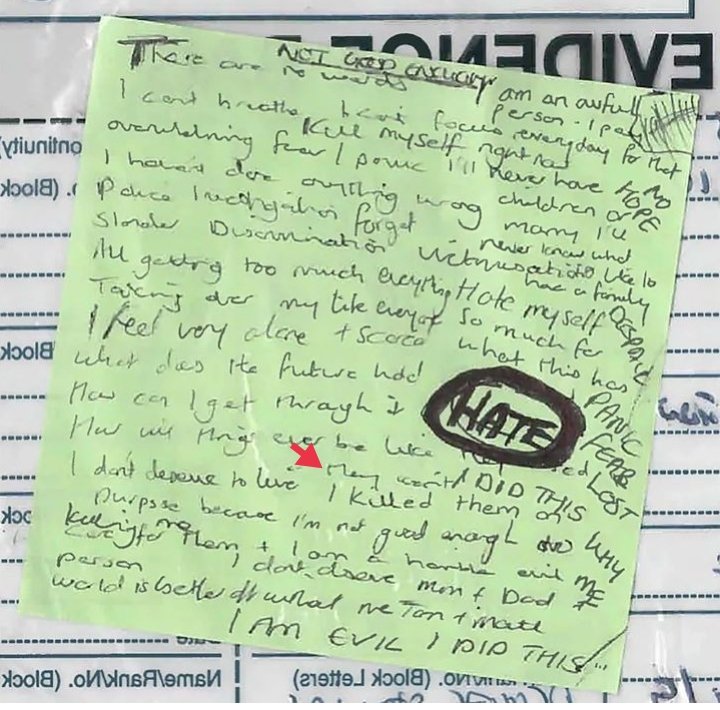 EVIDENCE
NOT GOOD ENOUGH
There are no words
I am an awful person - I pay
I cant breathe I cant focus everyday for that
Kill myself right now
overwhelming fear / panic I'll never have NO
HOPE
I haven't done anything wrong children or
marry I'll
Police Investigation forget never know what
Slander Discrimination Victimisation its like to
have a family
All getting too much everything Hate myself DESPAIR
Taking over my life everyday so much for
I feel very alone + scared what this has
What does the future hold PANIC
HATE
How can I get through it FEAR
How will things ever be like LOST
they I DID THIS
I don't deserve to live I killed them on WHY
purpose because I'm not good enough to ME
care for them + I am a horrible evil
Killing me
person I dont deserve mum + Dad +
world is better off without me Tom + Matt
I AM EVIL I DID THIS
(Block
Name/Rank/No. (Block
Rank/No. (Block Letters)